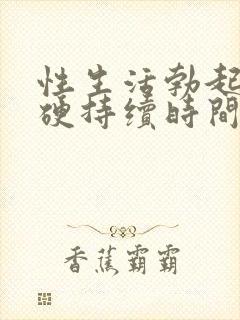 性生活勃起
硬持續時間
香蕉霸霸